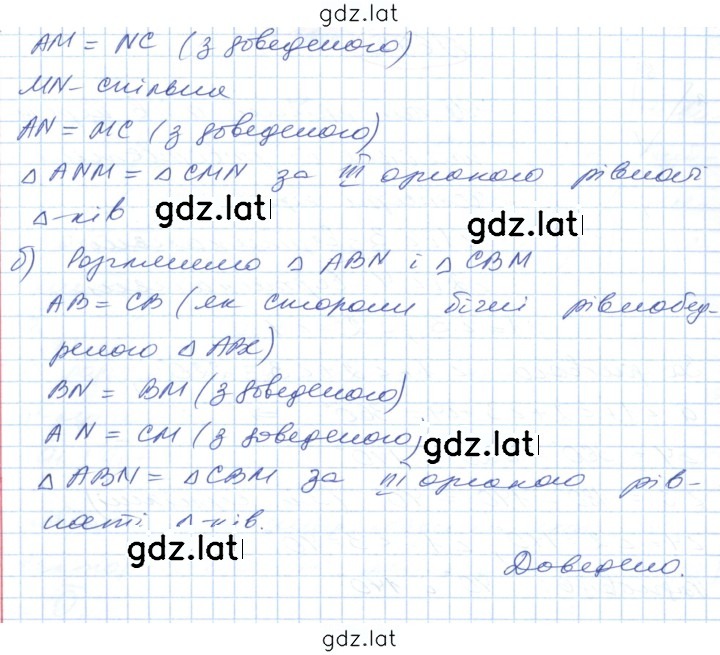 gdz.lat
AM = NC (з доведеного)
MN - спільна
AN = MC (з доведеного)
△ ANM = △ CMN за III ознакою рівності
△-ків gdz.lat
gdz.lat
б) Розглянемо △ ABN і △ CBM
AB = CB (як сторони бічні рівнобед-
реного △ ABC)
BN = BM (з доведеного)
AN = CM (з доведеного) gdz.lat
△ ABN = △ CBM за III ознакою рів-
ності △-ків.
gdz.lat
Доведено.
gdz.lat